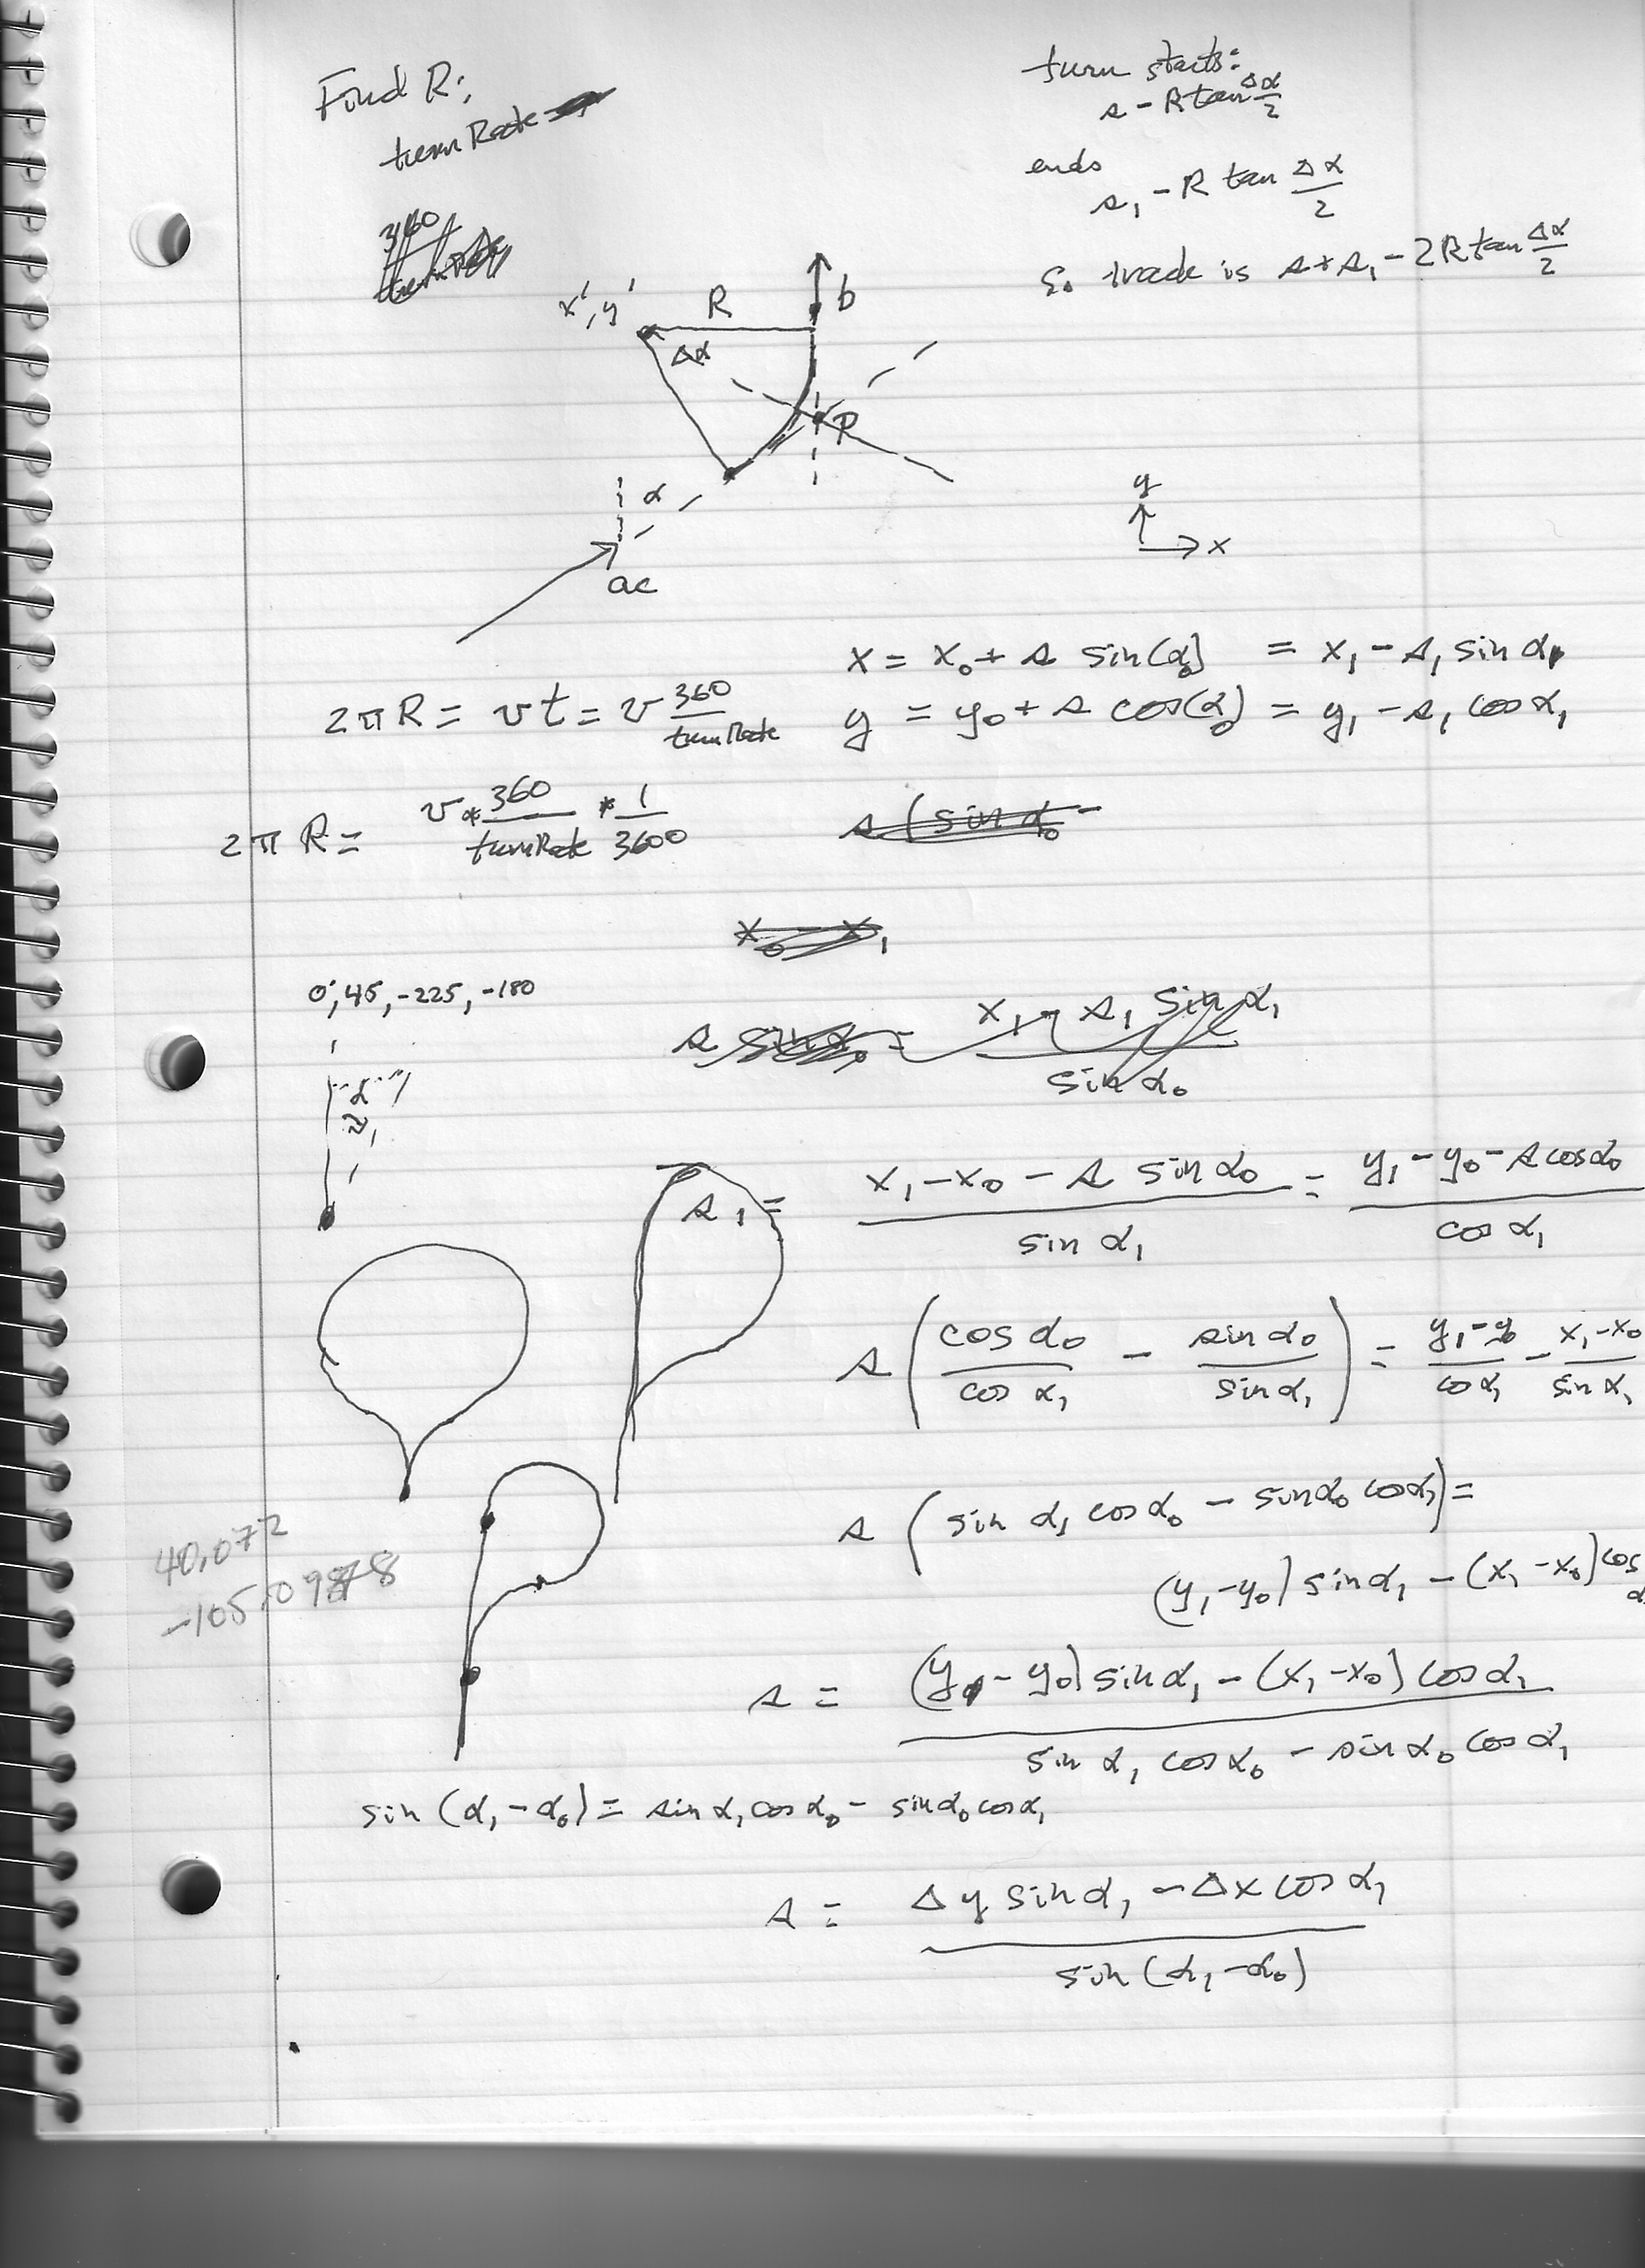 Find R:
turn Rate
turn starts:
s - R tan Δα/2
ends
s₁ - R tan Δα/2
So track is s + s₁ - 2R tan Δα/2
360
turnRate
x', y'
R
b
Δα
P
α
ac
y
x
x = x₀ + s sin(α₀) = x₁ - s₁ sin α₁
y = y₀ + s cos(α₀) = y₁ - s₁ cos α₁
2πR = vt = v 360/turnRate
2πR = v * 360/turnRate * 1/3600
s (sin α₀ -
x₀ - x₁
0, 45, -225, -180
s sin α₀ = x₁ - s₁ sin α₁ / sin α₀
α
s₁ = (x₁ - x₀ - s sin α₀)/sin α₁ = (y₁ - y₀ - s cos α₀)/cos α₁
s (cos α₀/cos α₁ - sin α₀/sin α₁) = (y₁ - y₀)/cos α₁ - (x₁ - x₀)/sin α₁
s (sin α₁ cos α₀ - sin α₀ cos α₁) =
(y₁ - y₀) sin α₁ - (x₁ - x₀) cos α
40.072
-105.0
s = ((y₁ - y₀) sin α₁ - (x₁ - x₀) cos α₁)/(sin α₁ cos α₀ - sin α₀ cos α₁)
sin (α₁ - α₀) = sin α₁ cos α₀ - sin α₀ cos α₁
s = (Δy sin α₁ - Δx cos α₁)/sin (α₁ - α₀)